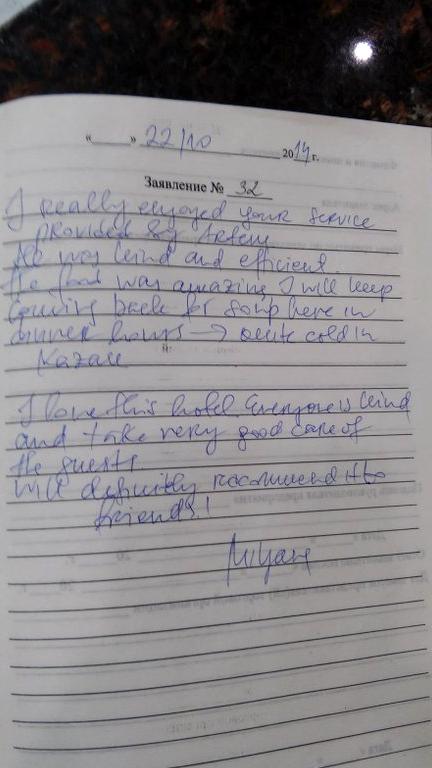 «    » 22/10 2014 г.
Заявление № 32
I really enjoyed your service
provided by Artem
He was kind and efficient.
The food was amazing I will keep
coming back for soup here in
dinner hours → quite cold in
Kazan
I love this hotel. Everyone is kind
and take very good care of
the guests.
will definitly recommend it to
friends!